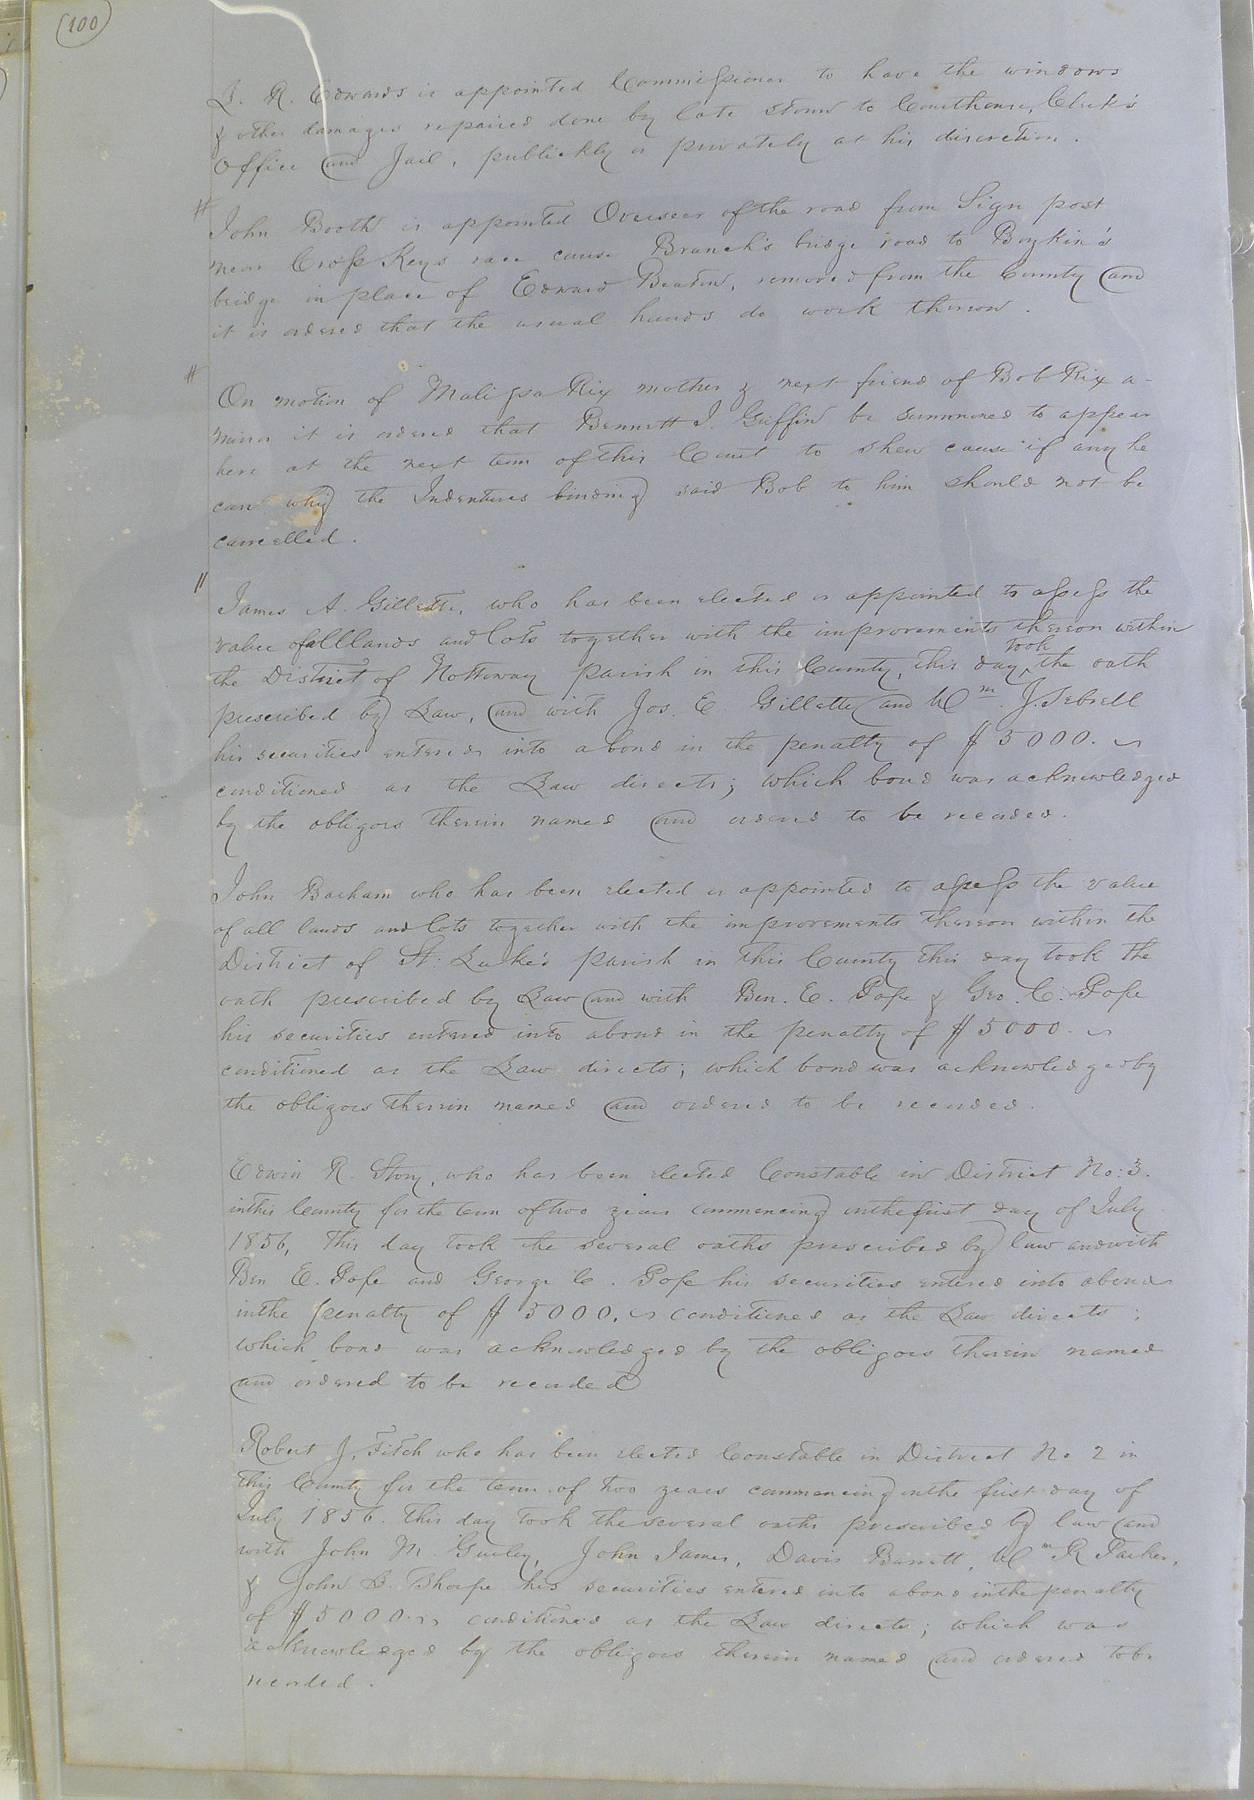 100
L. R. Edwards is appointed Commissioner to have the windows
& other damages repaired done by late storm to Courthouse, Clerk's
Office and Jail, publickly or privately at his discretion.
#
John Booth is appointed Overseer of the road from Sign post
near Cross Keys race cause Branch's bridge road to Boykin's
bridge in place of Edward Beaton, removed from the County and
it is ordered that the usual hands do work thereon.
#
On motion of Malissa Rix mother & next friend of Bob Rix a-
minor it is ordered that Bennett J. Griffin be summoned to appear
here at the next term of this Court to shew cause if any he
can why the Indentures binding said Bob to him should not be
cancelled.
"
James A. Gillette, who has been elected or appointed to assess the
value of all lands and lots together with the improvements thereon within
the District of Nottoway parish in this County, this day took the oath
prescribed by Law, and with Jos. E. Gillette and Wm. J. Sebrell
his securities entered into a bond in the penalty of $5000.
conditioned as the Law directs; which bond was acknowledged
by the obligors therein named and ordered to be recorded.
John Barham who has been elected or appointed to assess the value
of all lands and lots together with the improvements thereon within the
District of St: Luke's parish in this County this day took the
oath prescribed by Law and with Ben. E. Pope & Geo. C. Pope
his securities entered into a bond in the penalty of $5000.
conditioned as the Law directs; which bond was acknowledged by
the obligors therein named and ordered to be recorded.
Edwin R. Story, who has been elected Constable in District No: 3.
in this County for the term of two years commencing on the first day of July
1856, This day took the several oaths prescribed by law and with
Ben E. Pope and George C. Pope his securities entered into a bond
in the penalty of $5000. conditioned as the Law directs;
which bond was acknowledged by the obligors therein named
and ordered to be recorded
Robert J. Fitch who has been elected Constable in District No 2 in
this County for the term of two years commencing on the first day of
July 1856. this day took the several oaths prescribed by law and
with John M. Gurley, John James, Davis Barrett, Wm R Parker,
& John B. Thorpe his securities entered into a bond in the penalty
of $5000. conditioned as the Law directs; which was
acknowledged by the obligors therein named and ordered to be
recorded.